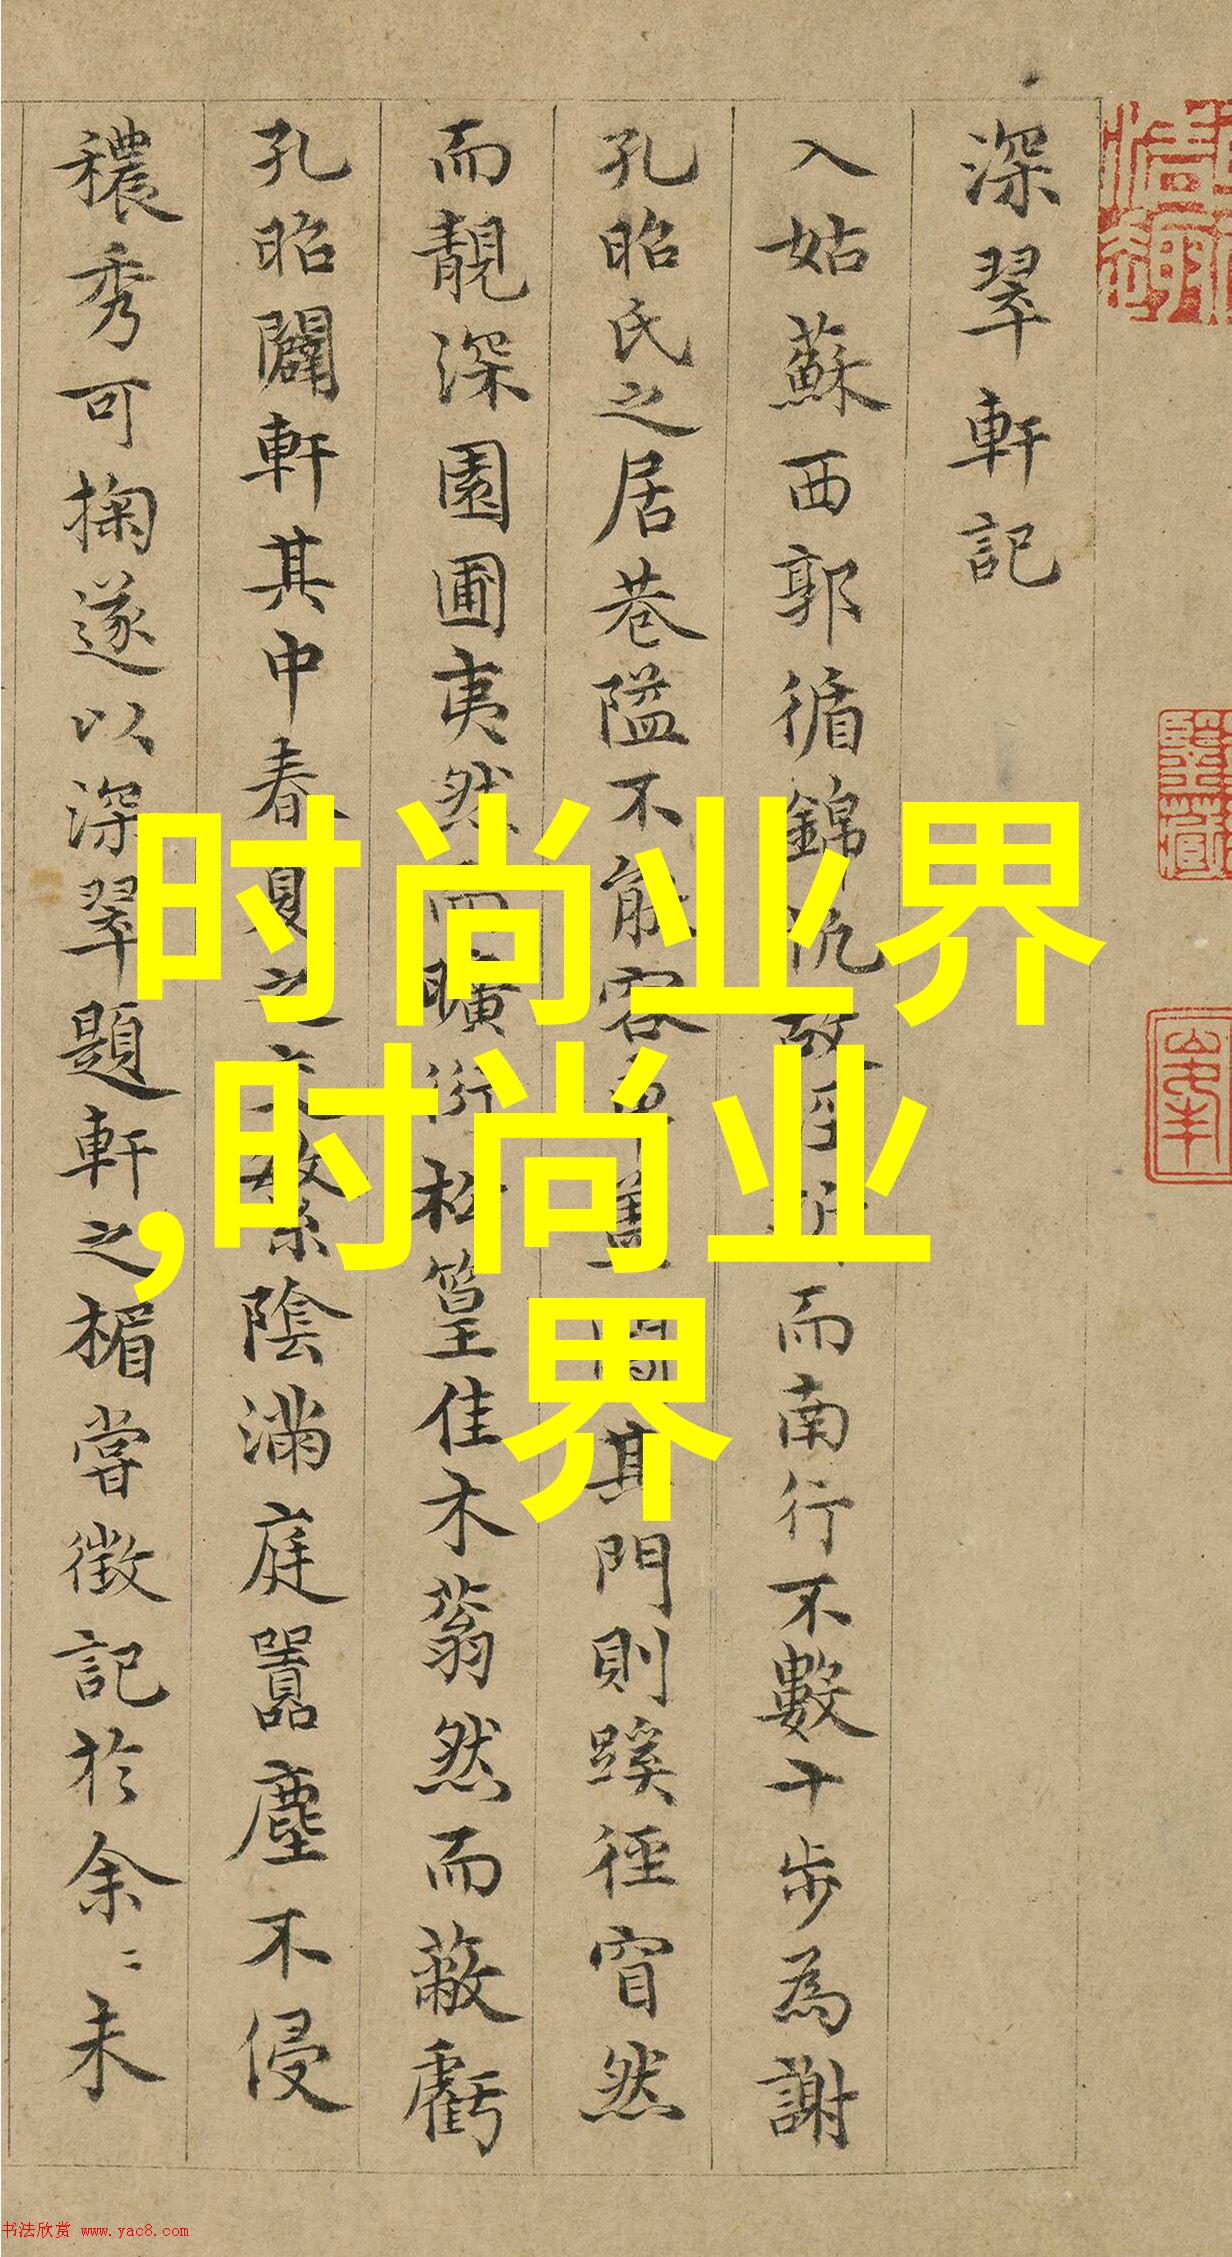 深翠軒記
入姑蘇西郭循錦而南行不數十步為謝
孔昭氏之居巷隘不能容其門則蹊徑窅然
而靚深園圃夷然而曠衍松篁佳木蓊然而蔽虧
孔昭闢軒其中春夏之交繁陰滿庭囂塵不侵
穠秀可掬遂以深翠題軒之楣嘗徵記於余〻未
时尚业界
,时尚业
界
山本
书法欣赏 www.yac8.com